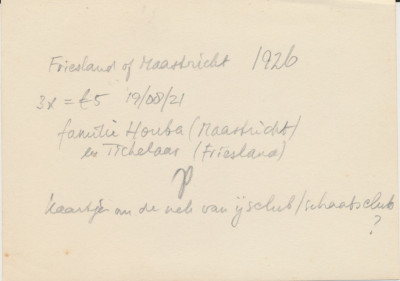 Friesland of Maastricht 1926
3x = €5 19/08/21
familie Houba (Maastricht)
en Tichelaar (Friesland)
kaartje om de nek van ijsclub/schaatsclub
?